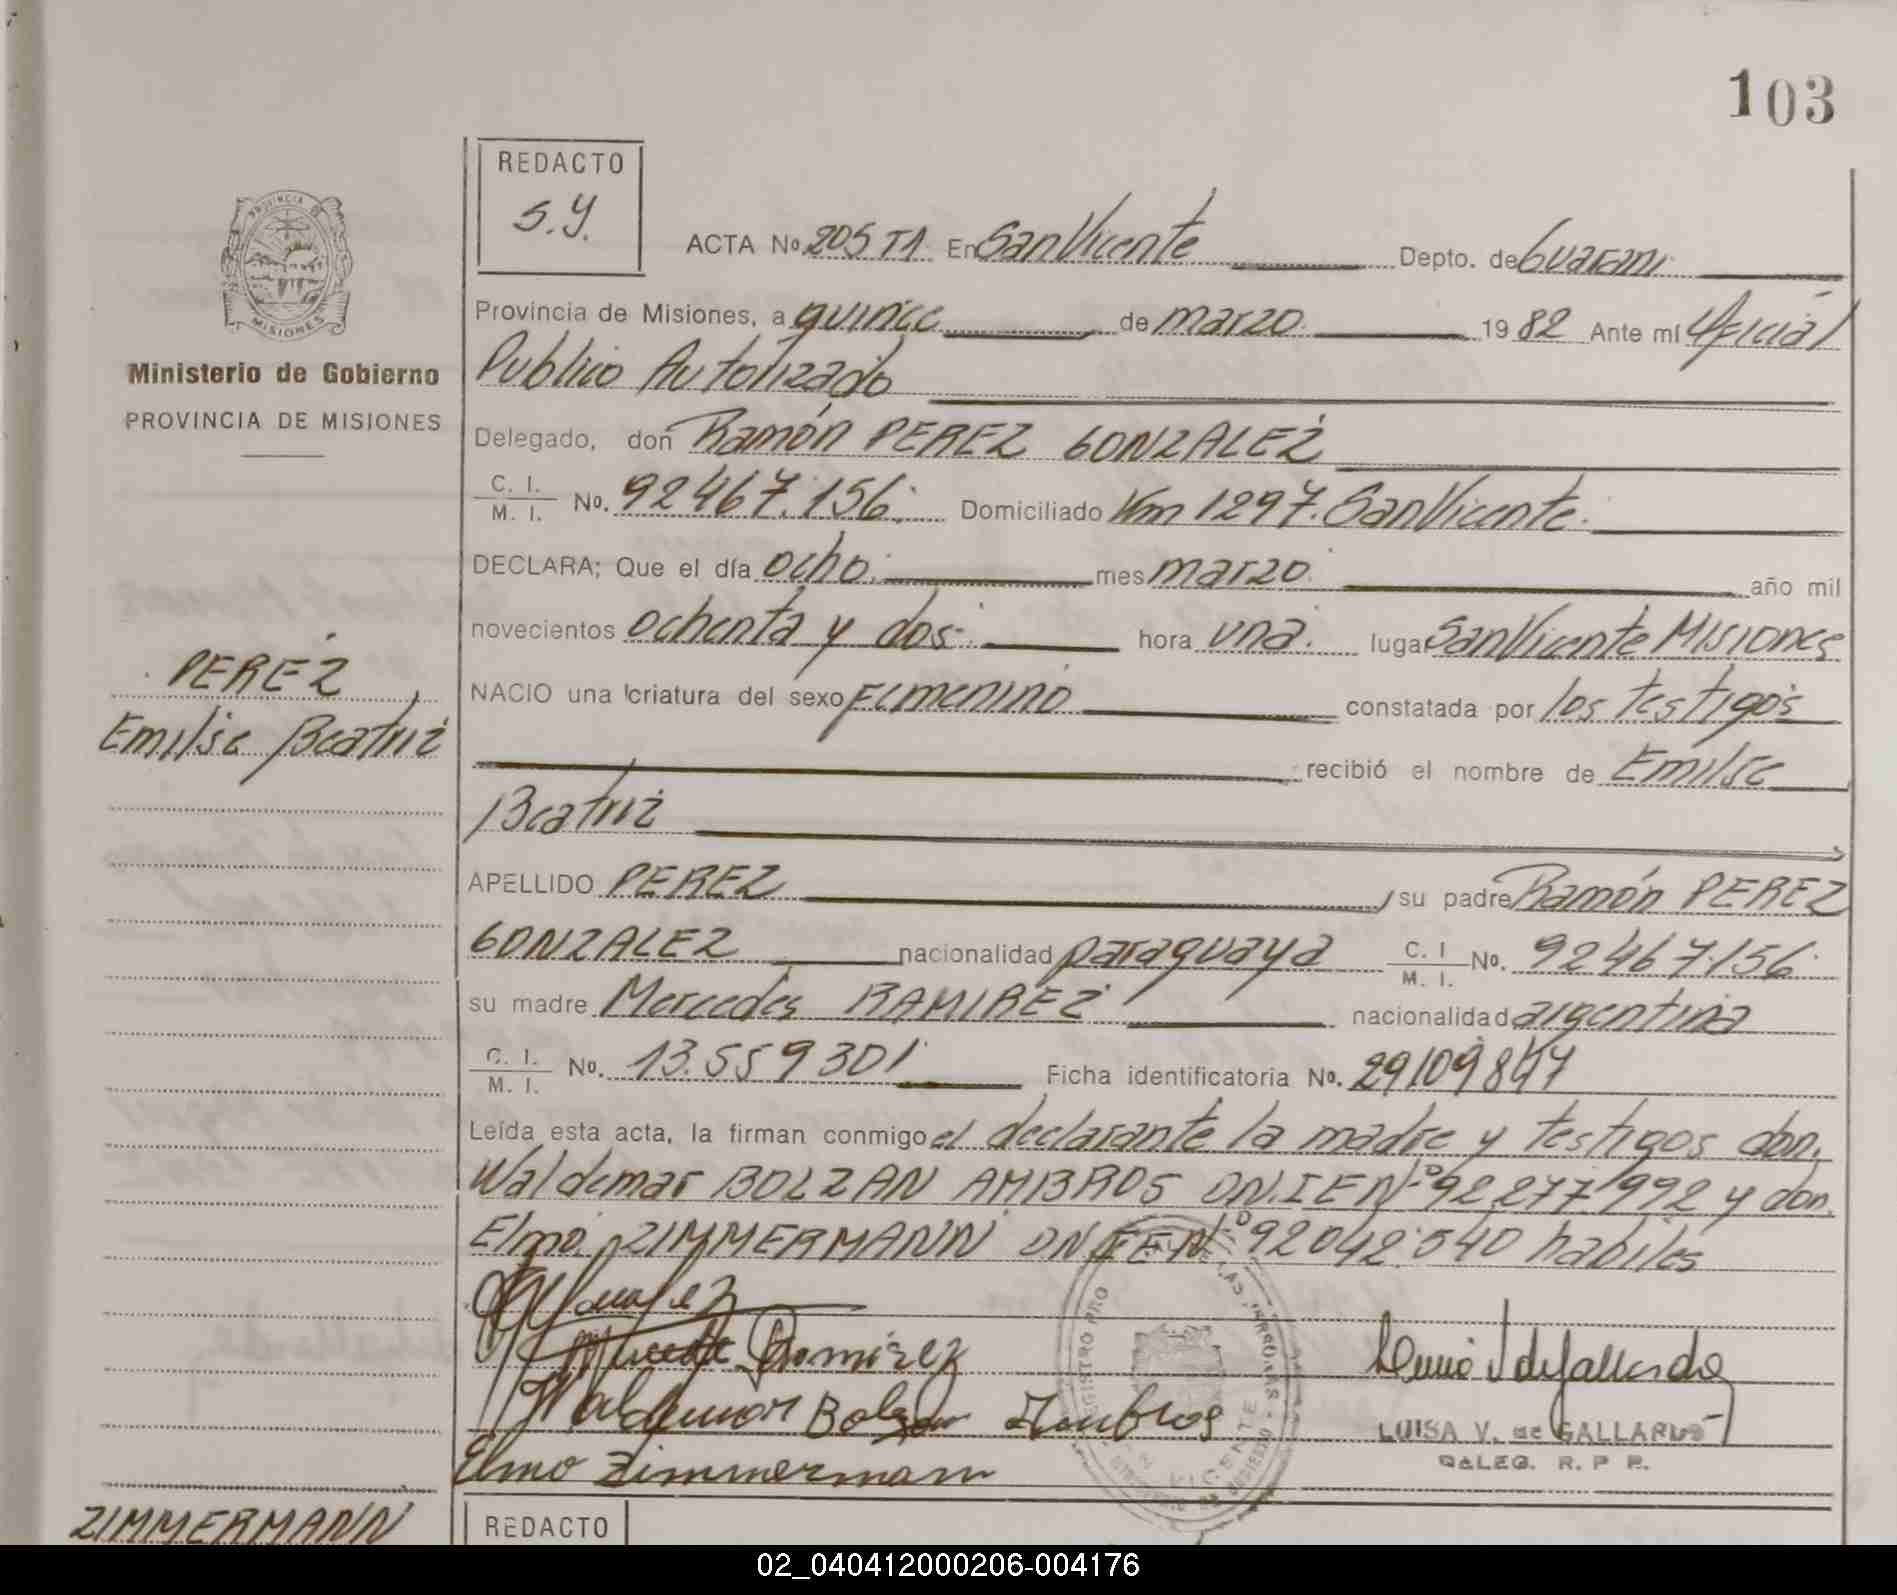 103
REDACTO
S.Y.
PROVINCIA DE
MISIONES
Ministerio de Gobierno
PROVINCIA DE MISIONES
ACTA No 205 T1. En San Vicente Depto. de Guarani
Provincia de Misiones, a quince de marzo 1982 Ante mí Oficial
Publico Autorizado
Delegado, don Ramón PEREZ GONZALEZ
C. I. / M. I. No. 92467.156. Domiciliado Km 1297. San Vicente.
DECLARA; Que el día ocho. mes marzo. año mil
novecientos ochenta y dos. hora una. lugar San Vicente Misiones
NACIO una criatura del sexo femenino constatada por los testigos
recibió el nombre de Emilse
Beatriz
PEREZ,
Emilse Beatriz
APELLIDO PEREZ, su padre Ramón PEREZ
GONZALEZ nacionalidad paraguaya C. I / M. I. No. 92467.156.
su madre Mercedes RAMIREZ nacionalidad argentina
C. I. / M. I. No. 13.559301 Ficha identificatoria No.
Leída esta acta, la firman conmigo el declarante la madre y testigos don.
Waldemar BOLZAN AMBROS DN.I E Nº 92.277.992 y don.
Elmo ZIMMERMANN DN I E Nº 92042.540 habiles
Ramirez
Waldemar Bolzan Ambros
Elmo Zimmermann
LUISA V. de GALLARDO
DELEG. R. P P.
ZIMMERMANN
REDACTO
02_040412000206-004176